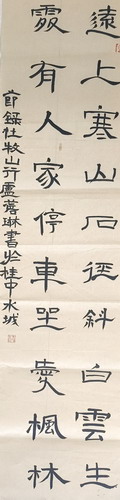 遠上寒山石徑斜白雲生
處有人家停車坐愛楓林
節錄杜牧山行盧荟琳書於桂中水城